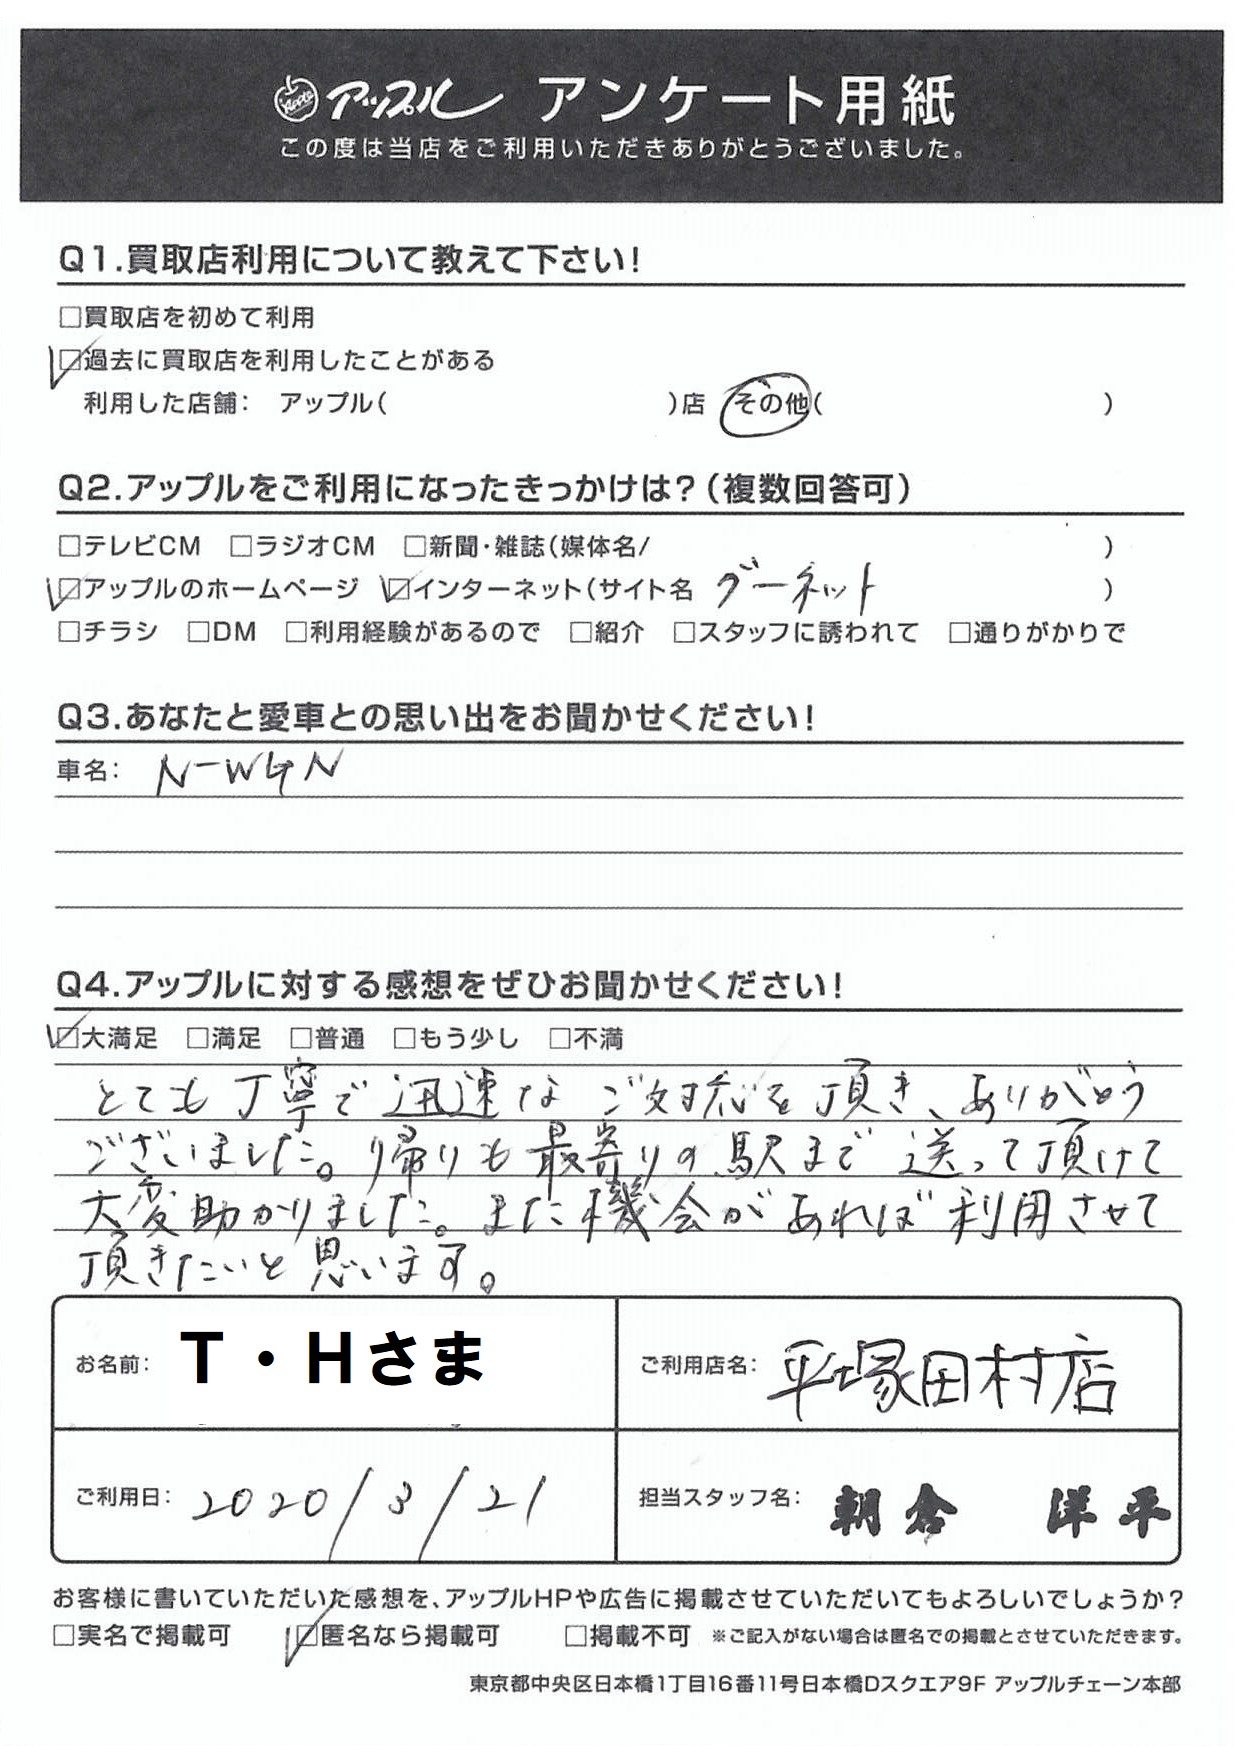 Apple アップル アンケート用紙
この度は当店をご利用いただきありがとうございました。
Q1.買取店利用について教えて下さい!
□買取店を初めて利用
☑過去に買取店を利用したことがある
利用した店舗: アップル( )店 その他( )
Q2.アップルをご利用になったきっかけは?(複数回答可)
□テレビCM □ラジオCM □新聞・雑誌(媒体名/ )
☑アップルのホームページ ☑インターネット(サイト名 グーネット )
□チラシ □DM □利用経験があるので □紹介 □スタッフに誘われて □通りがかりで
Q3.あなたと愛車との思い出をお聞かせください!
車名: N-WGN
Q4.アップルに対する感想をぜひお聞かせください!
☑大満足 □満足 □普通 □もう少し □不満
とても丁寧で迅速なご対応を頂き、ありがとう
ございました。帰りも最寄りの駅まで送って頂けて
大変助かりました。また機会があれば利用させて
頂きたいと思います。
お名前: T・Hさま ご利用店名: 平塚田村店
ご利用日: 2020/3/21 担当スタッフ名: 朝倉 洋平
お客様に書いていただいた感想を、アップルHPや広告に掲載させていただいてもよろしいでしょうか?
□実名で掲載可 ☑匿名なら掲載可 □掲載不可 ※ご記入がない場合は匿名での掲載とさせていただきます。
東京都中央区日本橋1丁目16番11号日本橋Dスクエア9F アップルチェーン本部